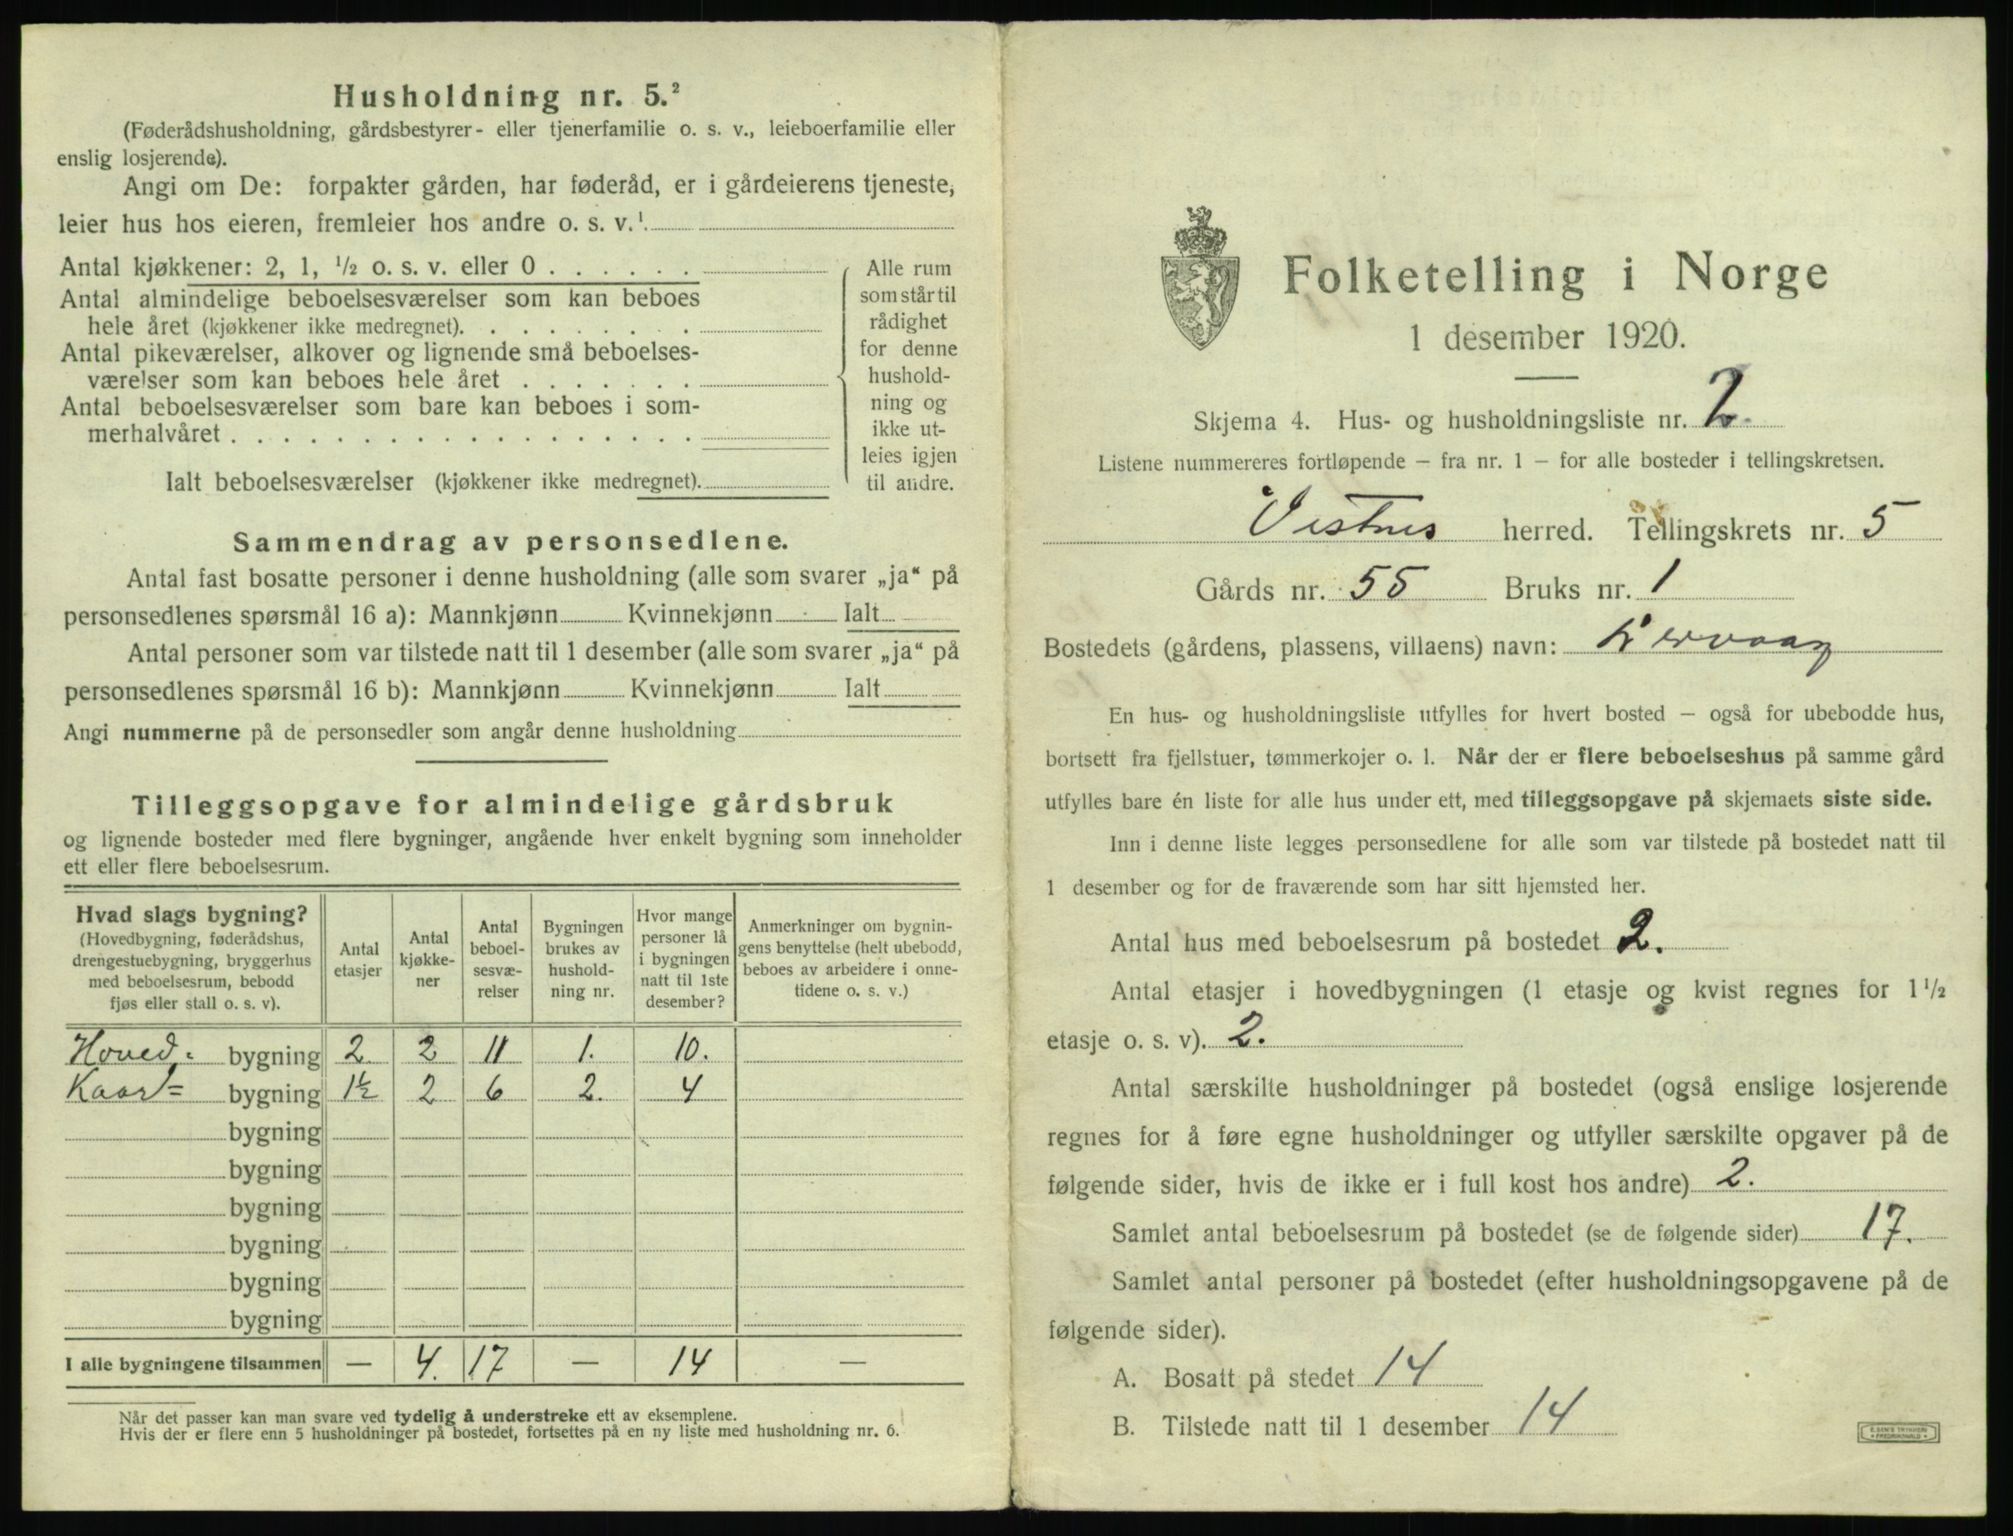 Husholdning nr. 5.²
(Føderådshusholdning, gårdsbestyrer- eller tjenerfamilie o. s. v., leieboerfamilie eller
enslig losjerende).
Angi om De: forpakter gården, har føderåd, er i gårdeierens tjeneste,
leier hus hos eieren, fremleier hos andre o. s. v.¹
Antal kjøkkener: 2, 1, ½ o. s. v. eller 0 . . . . . .
Antal almindelige beboelsesværelser som kan beboes
hele året (kjøkkener ikke medregnet). . . . . . . . .
Antal pikeværelser, alkover og lignende små beboelses-
værelser som kan beboes hele året . . . . . . .
Antal beboelsesværelser som bare kan beboes i som-
merhalvåret . . . . . . . . . . . . . . . . . .
Ialt beboelsesværelser (kjøkkener ikke medregnet).
Alle rum
som står til
rådighet
for denne
hushold-
ning og
ikke ut-
leies igjen
til andre.
Sammendrag av personsedlene.
Antal fast bosatte personer i denne husholdning (alle som svarer „ja“ på
personsedlenes spørsmål 16 a): Mannkjønn Kvinnekjønn Ialt
Antal personer som var tilstede natt til 1 desember (alle som svarer „ja“ på
personsedlenes spørsmål 16 b): Mannkjønn Kvinnekjønn Ialt
Angi nummerne på de personsedler som angår denne husholdning
Tilleggsopgave for almindelige gårdsbruk
og lignende bosteder med flere bygninger, angående hver enkelt bygning som inneholder
ett eller flere beboelsesrum.
Hvad slags bygning?
(Hovedbygning, føderådshus,
drengestuebygning, bryggerhus
med beboelsesrum, bebodd
fjøs eller stall o. s. v).
Antal
etasjer
Antal
kjøkke-
ner
Antal
beboel-
sesvæ-
relser
Bygningen
brukes av
hushold-
ning nr.
Hvor mange
personer lå
i bygningen
natt til 1ste
desember?
Anmerkninger om bygnin-
gens benyttelse (helt ubebodd,
beboes av arbeidere i onne-
tidene o. s. v.)
Hoved- bygning 2 2 11 1. 10.
Kaar= bygning 1½ 2 6 2. 4
bygning
bygning
bygning
bygning
bygning
bygning
I alle bygningene tilsammen — 4. 17 — 14 —
Når det passer kan man svare ved tydelig å understreke ett av eksemplene.
Hvis der er flere enn 5 husholdninger på bostedet, fortsettes på en ny liste med husholdning nr. 6.
Folketelling i Norge
1 desember 1920.
Skjema 4. Hus- og husholdningsliste nr. 2.
Listene nummereres fortløpende – fra nr. 1 – for alle bosteder i tellingskretsen.
Vestnes herred. Tellingskrets nr. 5
Gårds nr. 55 Bruks nr. 1
Bostedets (gårdens, plassens, villaens) navn:
En hus- og husholdningsliste utfylles for hvert bosted – også for ubebodde hus,
bortsett fra fjellstuer, tømmerkojer o. l. Når der er flere beboelseshus på samme gård
utfylles bare én liste for alle hus under ett, med tilleggsopgave på skjemaets siste side.
Inn i denne liste legges personsedlene for alle som var tilstede på bostedet natt til
1 desember og for de fraværende som har sitt hjemsted her.
Antal hus med beboelsesrum på bostedet 2.
Antal etasjer i hovedbygningen (1 etasje og kvist regnes for 1½
etasje o. s. v). 2.
Antal særskilte husholdninger på bostedet (også enslige losjerende
regnes for å føre egne husholdninger og utfyller særskilte opgaver på de
følgende sider, hvis de ikke er i full kost hos andre) 2.
Samlet antal beboelsesrum på bostedet (se de følgende sider) 17.
Samlet antal personer på bostedet (efter husholdningsopgavene på de
følgende sider).
A. Bosatt på stedet 14
B. Tilstede natt til 1 desember 14